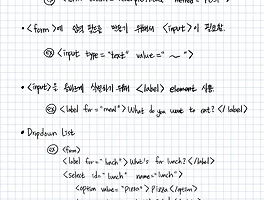 • <form>에 입력 필드를 만들기 위해서 <input>이 필요함.
ex <input type="text" value=" ~ ">
• <input>을 식별하기 위해 <label> element 사용.
ex <label for="meal"> What do you want to eat? </label>
• Dropdown List
ex <form>
<label for="lunch"> What's for lunch? </label>
<select id="lunch" name="lunch">
<option value="Pizza"> Pizza </option>